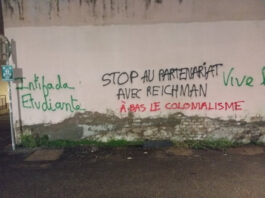 Intifada
Etudiante
STOP AU PARTENARIAT
AVEC REICHMAN
À BAS LE COLONIALISME
Vive l